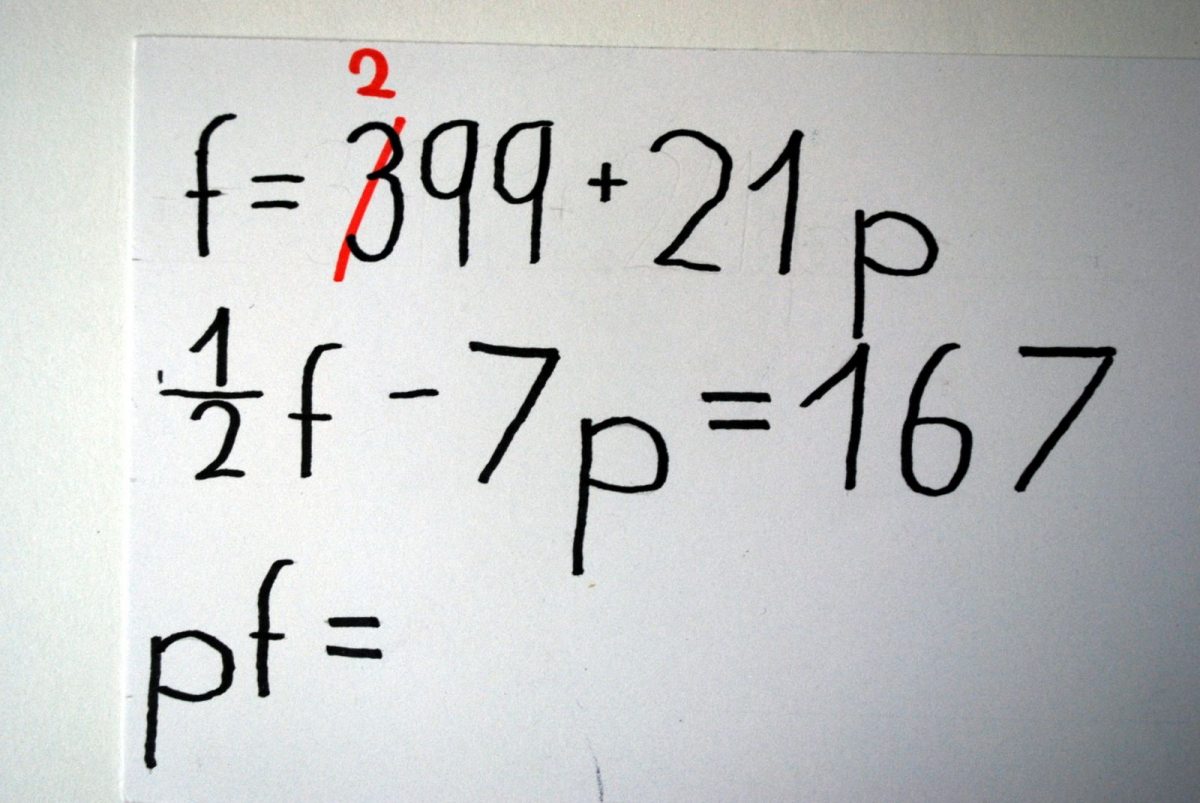 2
f = 399 + 21p
1/2 f - 7p = 167
pf =